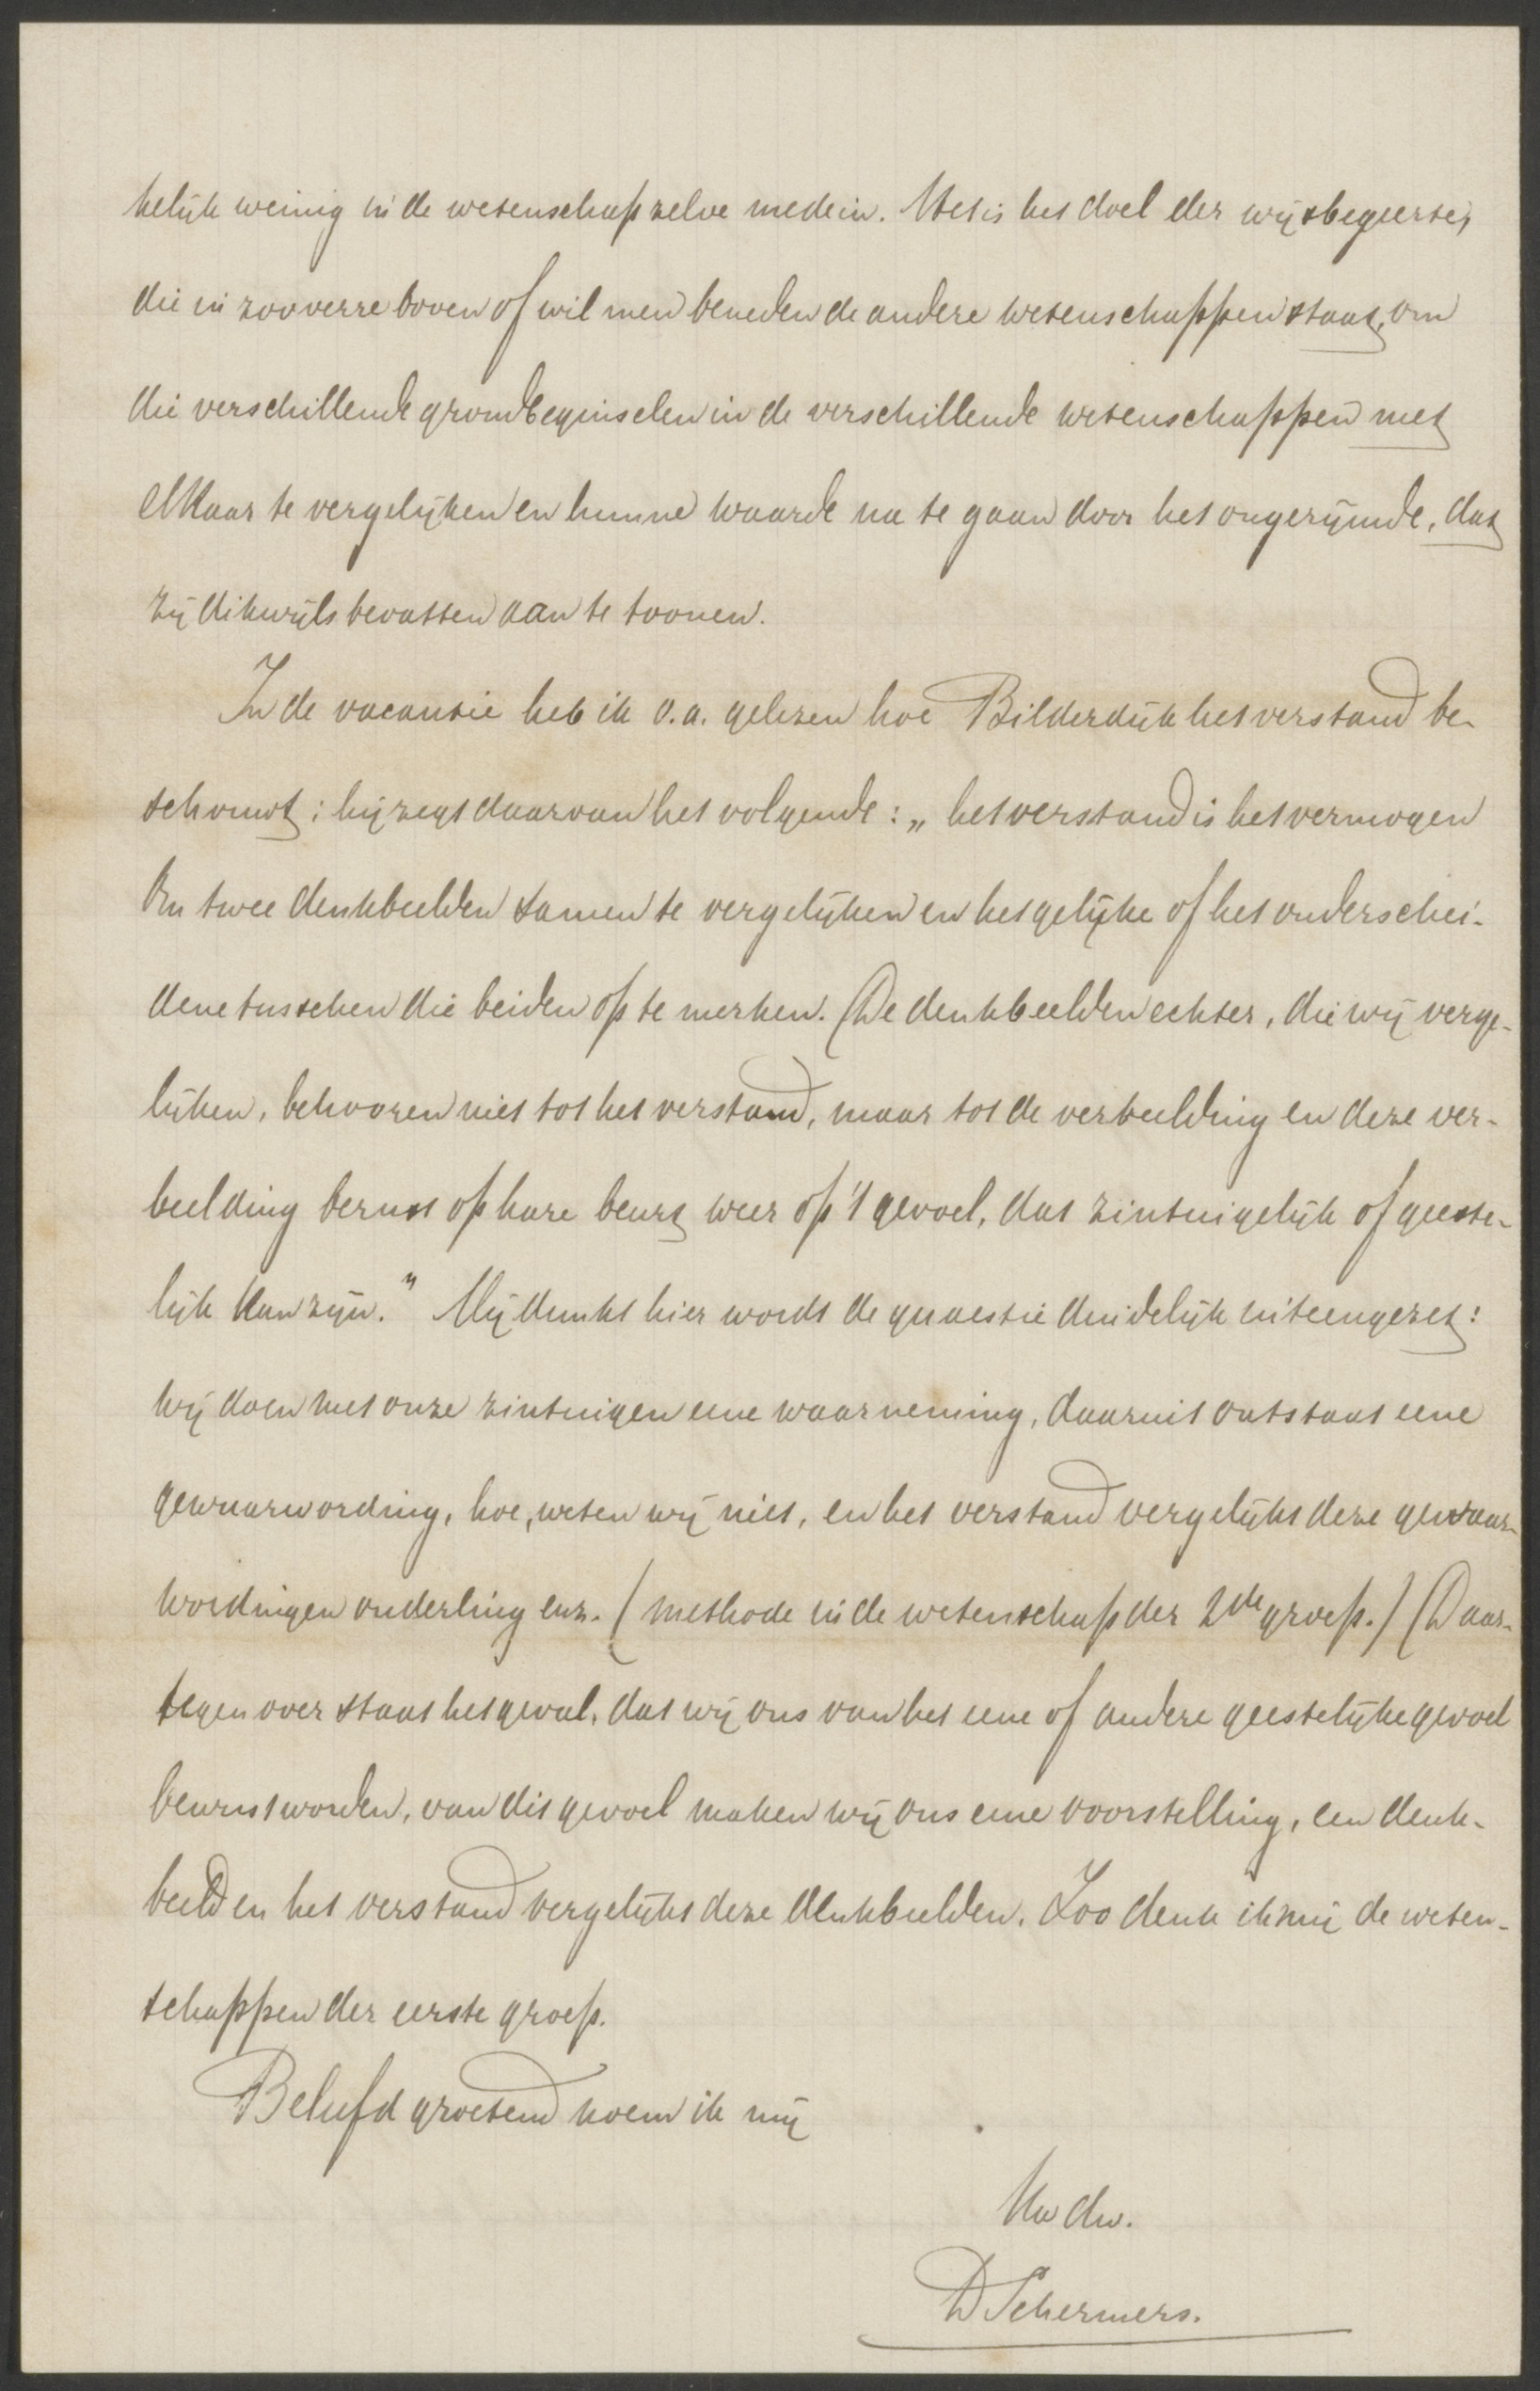 kelijk weinig in de wetenschap zelve mede in. Het is het doel der wijsbegeerte,
die in zooverre boven of wil men beneden de andere wetenschappen staat, om
die verschillende grondbeginselen in de verschillende wetenschappen met
elkaar te vergelijken en hunne waarde na te gaan door het ongerijmde, dat
zij dikwijls bevatten aan te toonen.
In de vacantie heb ik o.a. gelezen hoe Bilderdijk het verstand be-
schouwt; hij zegt daarvan het volgende: „het verstand is het vermogen
om twee denkbeelden samen te vergelijken en het gelijke of het onderschei-
dene tusschen die beiden op te merken. De denkbeelden echter, die wij verge-
lijken, behooren niet tot het verstand, maar tot de verbeelding en deze ver-
beelding berust op hare beurt weer op 't gevoel, dat zintuigelijk of geeste-
lijk kan zijn." Mij dunkt hier wordt de quaestie duidelijk uiteengezet:
wij doen met onze zintuigen eene waarneming, daaruit ontstaat eene
gewaarwording, hoe, weten wij niet, en het verstand vergelijkt deze gewaar-
wordingen onderling enz. (methode in de wetenschap der 2de groep.) Daar-
tegenover staat het geval, dat wij ons van het eene of andere geestelijke gevoel
bewust worden, van dit gevoel maken wij ons eene voorstelling, een denk-
beeld en het verstand vergelijkt deze denkbeelden. Zoo denk ik mij de weten-
schappen der eerste groep.
Beleefd groetend noem ik mij
Uw dw.
D Schermers.